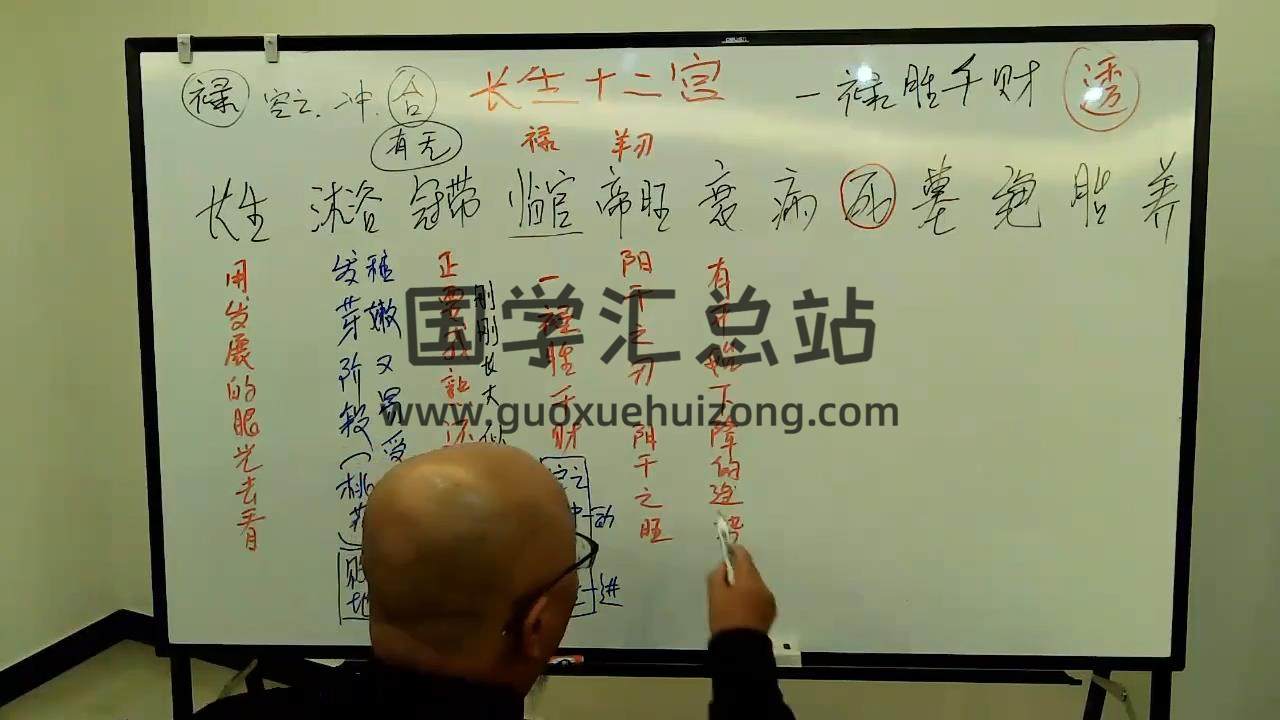 禄 空亡.冲.合 长生十二宫 一禄胜千财 透
有无
禄 羊刃
长生 沐浴 冠带 临官 帝旺 衰 病 死 墓 绝 胎 养
用发展的眼光去看
发芽阶段(桃花)
稚嫩又易受
败地
正要
刚刚长大
一禄胜千财
空亡
冲-动
进
阳干之刃 阳干之旺
有开始下降的
国学汇总站
www.guoxuehuizong.com